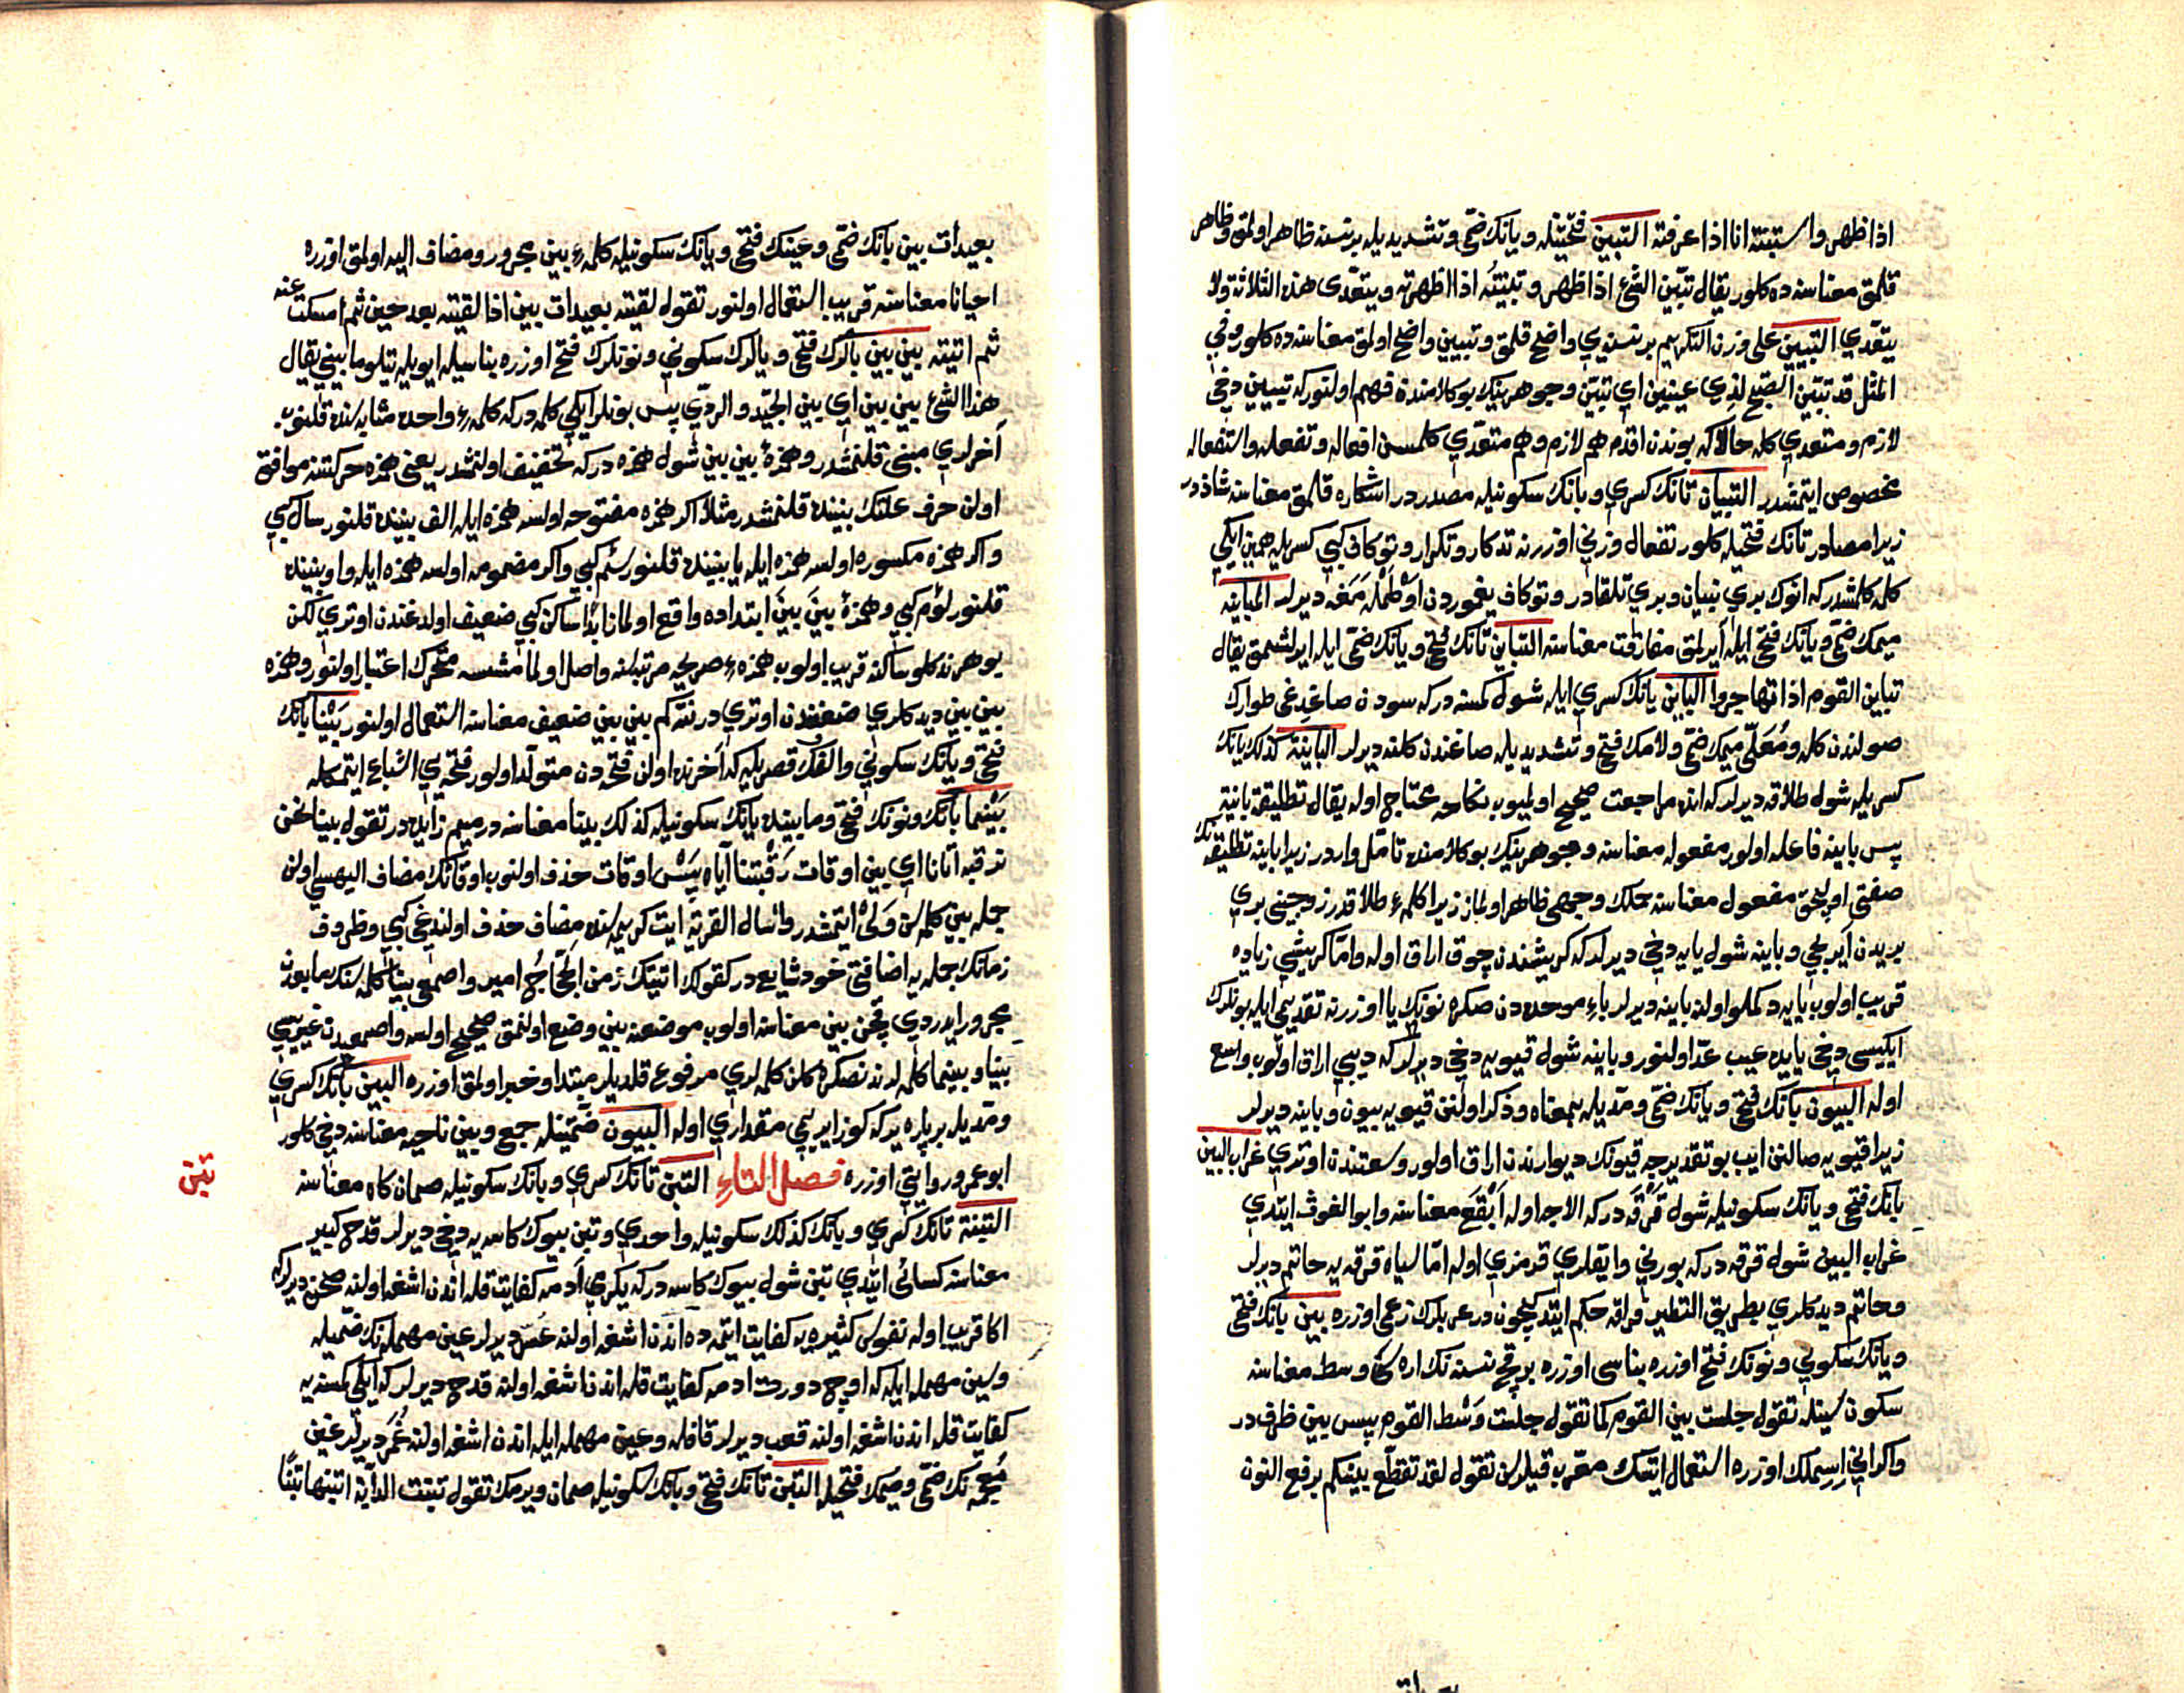 اذا ظهر واستبنته انا اذا عرفته التبين فتحتيله ويانك ضمى وتشديديله برنسنه ظاهر اولمق وظاهر
قلمق معناسنه ده كلور يقال تبين الشئ اذا ظهر وتبينته اذا اظهرته ويتعدى هذه الثلاثة ولا
يتعدى التبيين على وزن التكريم برنسنه يي واضح قلمق وتبيين واضح اولمق معناسنه ده كلور وفي
المثل قد تبين الصبح لذي عينين اي تبين وجوهرينك بوكلامندن فهم اولنور كه تبيين دخي
لازم ومتعدي كله حالا كه بوندن اقدم هم لازم وهم متعدي كلمسن افعال وتفعل واستفعاله
مخصوص ايتمشدر التبيان تانك كسري وبانك سكونيله مصدردر اشكاره قلمق معناسنه شاذدر
زيرا مصادر تانك فتحيله كلور تفعال وزني اوزرنه تذكار وتكرار وتوكاف كبي كسريله همين ايكي
كلمه كلمشدر كه انوك بري تبيان وبري تلقادر وتوكاف يغموردن اوطمله مغه ديرلر المباينه
ميمك ضمى ويانك فتحى ايله ايرلمق مفارقت معناسنه التباين تانك فتحى ويانك ضمى ايله ايرلشمق يقال
تباين القوم اذا تهاجروا الباين يانك كسري ايله شول كمسنه دركه سودن صاغديغى طوارك
صولندن كله ومعلى ميمك ضمى ولامك فتحى وتشديديله صاغندن كلنه ديرلر الباينة كذلك يانك
كسريله شول طلاقه ديرلركه انده مراجعت صحيح اولميوب نكاحه محتاج اوله يقال تطليقة باينة
پس باينه فاعله اولور مفعوله معناسنه وجوهرينك بوكلامنده تامل واردر زيرا باينه تطليقه نك
صفتى اوليجق مفعول معناسنه جملك وجهى ظاهر اولماز زيرا كلمهء طلاقدر زوجيني بري
بريدن ايريجي وباينه شول يايه دخي ديرلركه كريشندن چوق اراق اوله واما كريشي زياده
قريب اولوب يايه دكملو اولنه باينه ديرلر باء موحده دن صكره نونك يا اوزرنه تقديمي ايله بونلرك
ايكيسى دخي يايده عيب عد اولنور وباينه شول قيويه دخي ديرلركه ديبي اراق اولوب واسع
اوله البيون بانك فتحى ويانك ضمى ومديله بمعناه وذكر اولنن قيويه بيون وباينه ديرلر
زيرا قيويه صالنن ايب بوتقديرجه قيونك ديوارندن اراق اولور وسعتندن اوتري غراب البين
بانك فتحى ويانك سكونيله شول قرقه دركه الاجه اوله ابقع معناسنه وابو الغوث ايتدي
غراب البين شول قرقه دركه بورني واياقلري قرمزي اوله اما سياه قرقه يه حاتم ديرلر
وحاتم ديدكلري بطريق التطير فراقه حكم ايتدكيچون درعربلرك زعمى اوزره بين بانك فتحى
ويانك سكوني ونونك فتح اوزره بناسى اوزره برقچ نسنه نك اره سي وسط معناسنه
سكون سينله تقول جلست بين القوم كما تقول جلست وسط القوم پس بين ظرفدر
واكراني اسملك اوزره استعمال ايتسك معرب قيلرسن تقول لقد تقطع بينكم برفع النون
بعيدات بين بانك ضمى وعينك فتحى ويانك سكونيله كلمهء بين مجرور ومضاف اليه اولمق اوزره
احيانا معناسنه قريب استعمال اولنور تقول لقيته بعيدات بين اذا لقيته بعد حين ثم امسكت عنه
ثم اتيته بين بين بالرك فتحى ويالرك سكوني ونونلرك فتح اوزره بناسيله ايويله يتلو مابيني يقال
هذا الشئ بين بين اي بين الجيد والردي پس بونلر ايكي كلمه دركه كلمهء واحده مثابه سنده قلنوب
اخرلري مبنى قلنمشدر وهمزهٔ بين بين شول همزه دركه تخفيف اولنمشدر يعنى همزه حركتنه موافق
اولن حرف علتك بيننده قلنمشدر مثلا اكر همزه مفتوحه اولسه همزه ايله الف بيننده قلنور سال كبي
واكر همزه مكسوره اولسه همزه ايله يا بيننده قلنور سئم كبي واكر مضمومه اولسه همزه ايله واو بيننده
قلنور لؤم كبي وهمزهٔ بين بين ابتداده واقع اولماز ابدا ساكن كبي ضعيف اولدغندن اوتري لكن
يوهرنه دكلو ساكنه قريب اولوب همزهء صريحه مرتبه سنه واصل اولمامشسه متحرك اعتبار اولنور وهمزه
بين بين ديدكلري ضعفندن اوتري در نته كم بين بين ضعيف معناسنه استعمال اولنور بينا بانك
فتحى ويانك سكوني والفك قصريله كه اخرنده اولن فتحه دن متولد اولور فتحه يي اشباع ايتمكله
بينما بانك ونونك فتحى ومابينده يانك سكونيله كذلك بينا معناسنه درميم زايده در تقول بينا نحن
نرقبه اتانا اي بين اوقات رقبتنا اياه پس اوقات حذف اولنوب اوقاتك مضاف اليهسى اولن
جمله بين كلمه سن ولي ايتمشدر واسال القرية ايت كريمه سنده مضاف حذف اولندغي كبي وظروف
زمانك جمله يه اضافتى خود شايع در كقولك اتيتك زمن الحجاج امير واصمعي بينا كلمه سنك مابعدن
مجرور ايدردي قچن بين معناسنه اولوب موضعنه بين وضع اولنمق صحيح اولسه واصمعيدن غيريسى
بينا وبينما كلمه لرندن صكره كلن كلمه لري مرفوع قلديلر مبتدا وخبر اولمق اوزره البين بانك كسري
ومديله برپاره يردركه كوز ايريمي مقداري اوله البيون ضمتينله جمع وبين ناحيه معناسنه دخي كلور
ابوعمرو روايتى اوزره فصل التاء التبن تانك كسري وبانك سكونيله صمان كاه معناسنه
تبن
التبنة تانك كسري وبانك كذلك سكونيله واحدي وتبن بيوك كاسه يه دخي ديرلر قدح كبير
معناسنه كسائى ايتدي تبن شول بيوك كاسه دركه يكرمي ادمه كفايت قله اندن اشغه اولنه صحن ديرلركه
اكا قريب اوله نفوس كثيره يه كفايت ايتمه ده اندن اشغه اولنه عس ديرلر عين مهمله نك ضميله
وسين مهمله ايله كه اوچ دورت ادمه كفايت قله اندن اشغه اولنه قدح ديرلركه ايكي كمسنه يه
كفايت قله اندن اشغه اولنه قعب ديرلر قافله وعين مهمله ايله اندن اشغه اولنه غمر ديرلر غين
معجمه نك ضمى وميمك فتحيله التبن تانك فتحى وبانك سكونيله صمان ويرمك تقول تبنت الدابة اتبنها تبنا